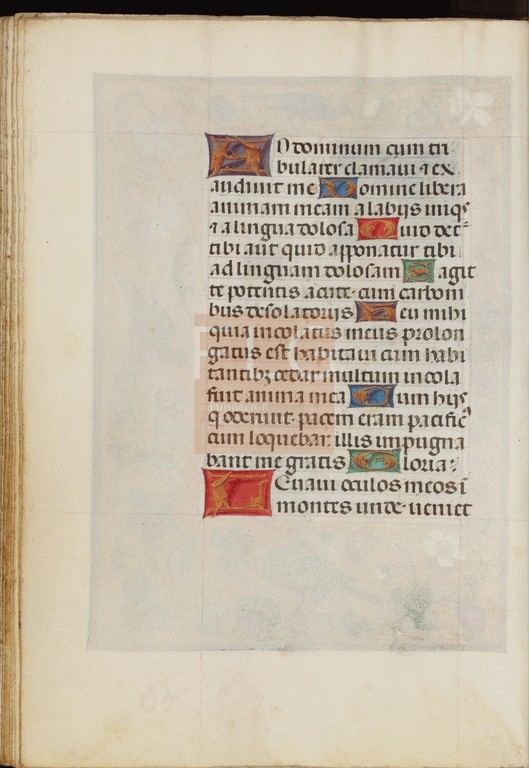 AD dominum cum tri
bularer clamaui ⁊ ex
audiuit me Domine libera
animam meam a labijs iniqꝫ
⁊ a lingua dolosa Quid det᷑
tibi aut quid apponatur tibi
ad linguam dolosam Sagit
te potentis acute cum carboni
bus desolatorijs Heu mihi
quia incolatus meus prolon
gatus est habitaui cum habi
tantibꝫ cedar multum incola
fuit anima mea Cum hijs
q oderunt pacem eram pacific᷒
cum loquebar illis impugna
bant me gratis Gloria
LEuaui oculos meos ī
montes unde ueniet